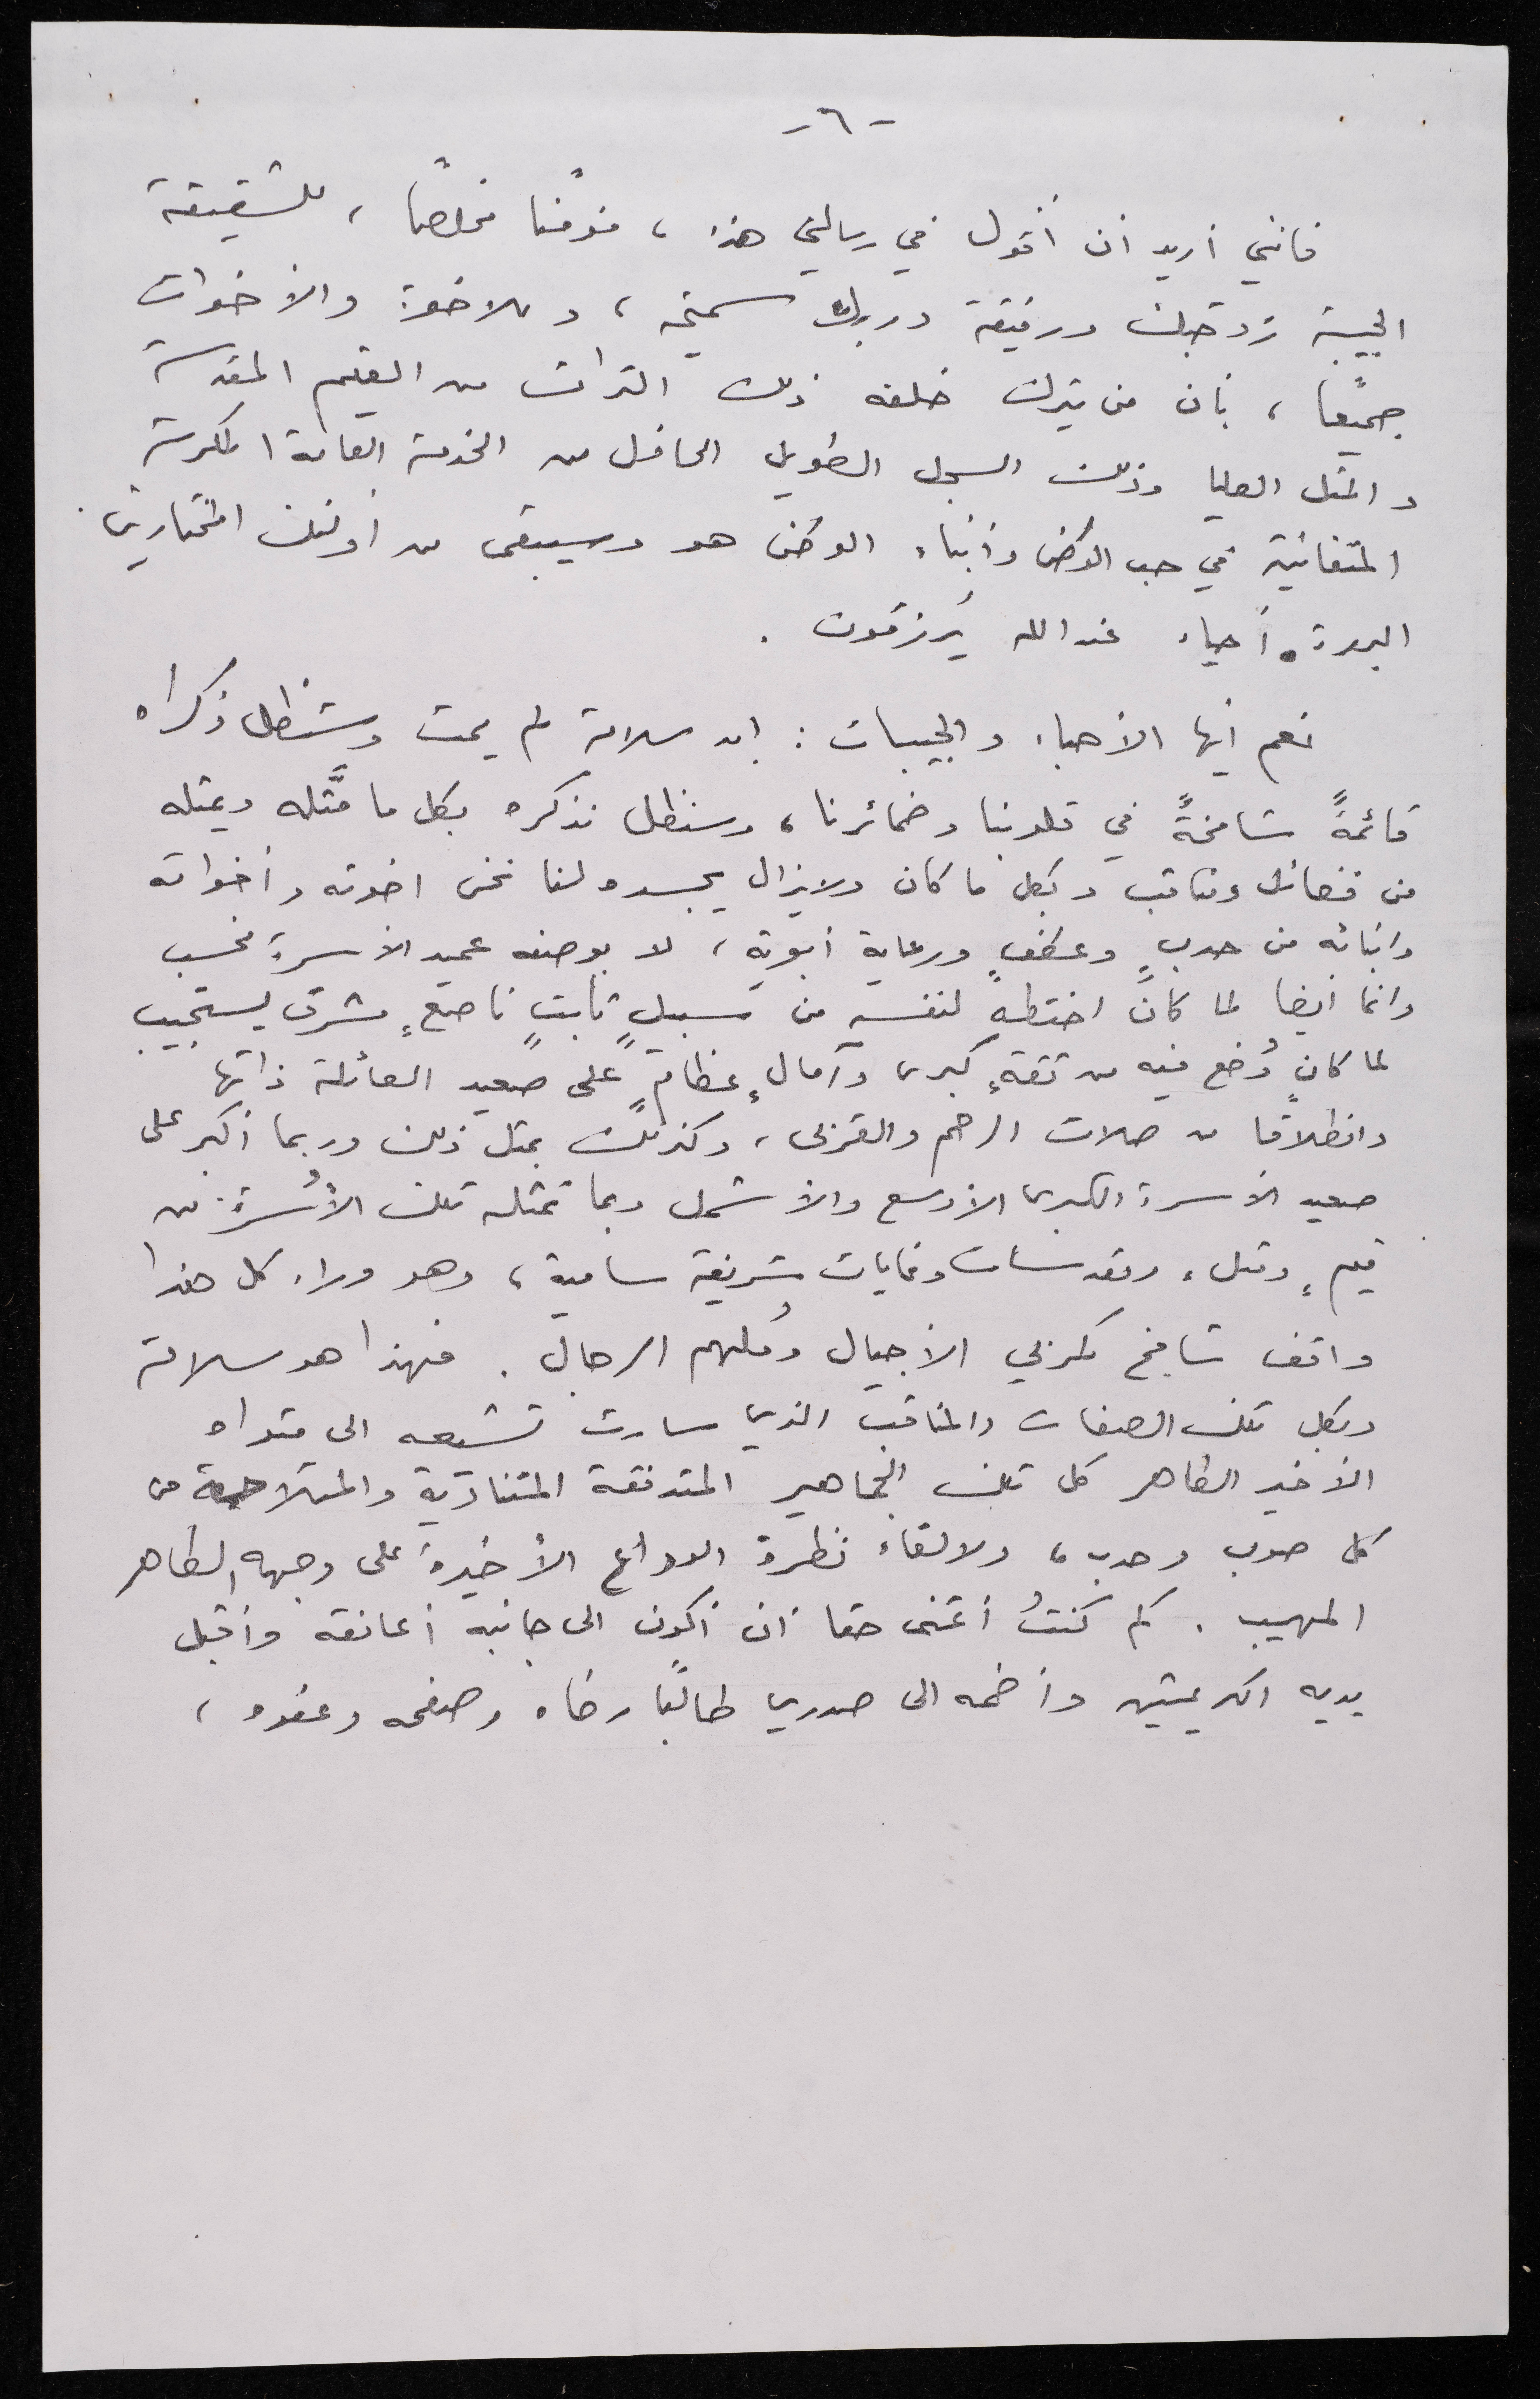 -٦-
فانني أريد أن أقول في رسالتي هذه ، مؤمنًا مخلصًا ، للشقيقة
الحبيبة زوجتك ورفيقة دربك سميحه ، وللاخوة والأخوات
جميعًا ، بأن من يترك خلفه ذلك التراث من القيم المقدسة
والمثل العليا وذلك السجل الطويل الحافل من الخدمة العامة المكرسة
المتفانية في حب الوطن وأبناء الوطن هو وسيبقى من أولئك المختارين
البررة أحياء عند الله يُرزقون .
نعم أيها الأحباء والحبيبات : ان سلامة لم يمت وستظل ذكراه
قائمةً شامخةً في قلوبنا وضمائرنا ، وسنظل نذكره بكل ما مثَّله ويمثله
من فضائل ومناقب وبكل ما كان ولايزال يجسده لنا نحن اخوته وأخواته
وأبنائه من حدبٍ وعطفٍ ورعاية أبوية ، لا بوصفه عميد الأسرة فحسب
وانما أيضا لما كان اختطه لنفسه من سبيلٍ ثابتٍ ناصعٍ مشرق يستجيب
لما كان وُضع فيه من ثقةٍ كبرى وآمالٍ عظامٍ على صعيد العائلة ذاتها
وانطلاقًا من صلات الرحم والقربى ، وكذلك بمثل ذلك وربما أكبر على
صعيد الأسرة الكبرى الأوسع والأشمل وبما تمثله تلك الأُسرة من
قيمٍ ومثلٍ ومقدسات وغايات شريفة سامية ، وهو وراء كل هذا
واقف شامخ كمربي الأجيال ومُلهم الرجال . فهذا هو سلامة
وبكل تلك الصفات والمناقب الذي سارت تشيعه الى مثواه
الأخير الطاهر كل تلك الجماهير المتدفقة المتنادية والمتلاحمة من
كل صوب وحدب ، ولالقاء نظرة الوداع الأخيرة على وجهه الطاهر
المهيب . كم كنتُ أتمنى حقا أن أكون الى جانبه أعانقه وأقبل
يديه الكريمتين وأضمه الى صدري طالبًا رضاه وصفحه وعفوه ،